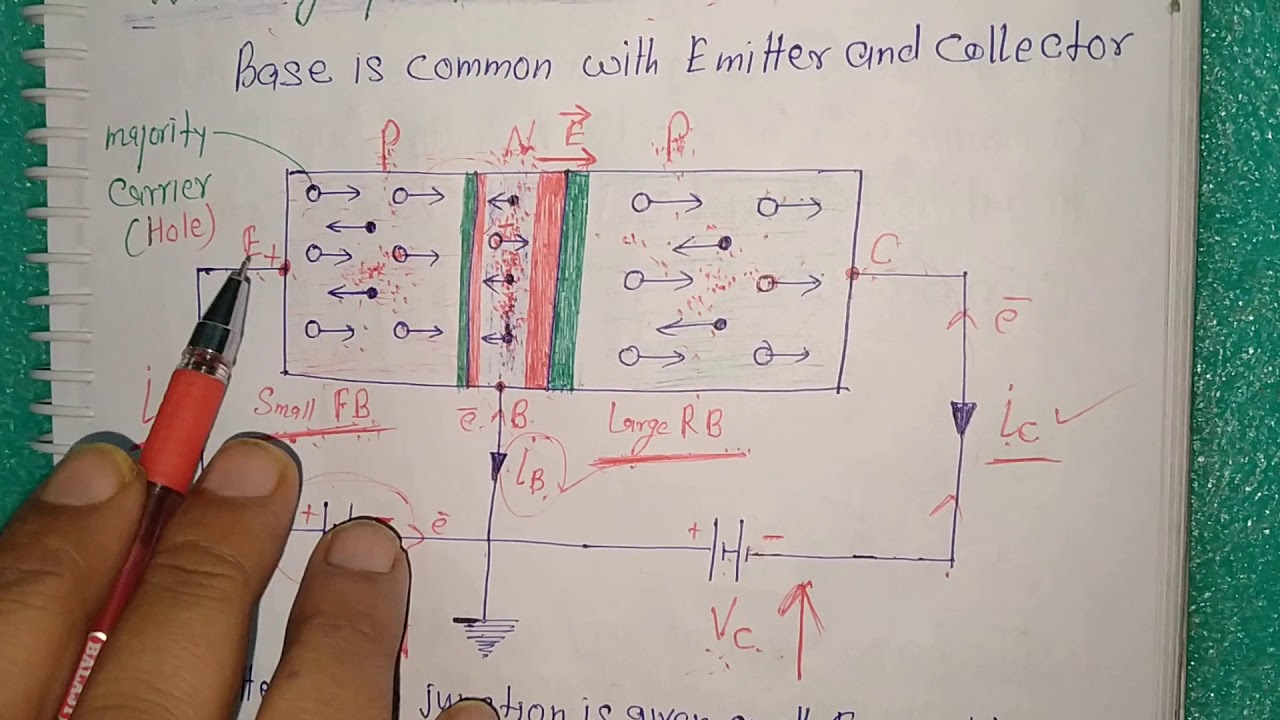 Base is common with Emitter and Collector
majority
carrier
(Hole)
P N E P
E +
C
e
Small FB
e B.
Large RB
iC
iB
+ - e
+ -
VC
junction is given